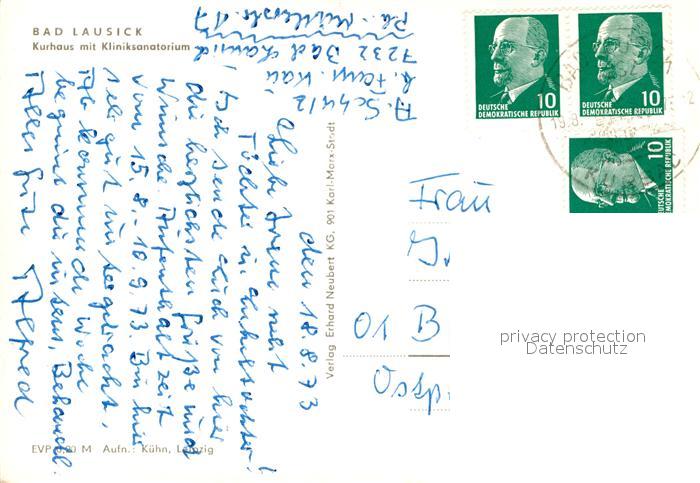 BAD LAUSICK
Kurhaus mit Kliniksanatorium
A. Schulz
7232 Bad Lausick
den 18.8.73
Liebe Irene nebst
Töchter u.
Ich sende Euch von hier
die herzlichsten Grüße und
wünsche Aufenthalt Zeit
vom 15.8.-10.9.73. Bin hier
sehr gut untergebracht,
Ab kommende Woche
beginnt die intens. Behandl.
Alles Gute Alfred
Verlag Erhard Neubert KG, 901 Karl-Marx-Stadt
EVP 0,20 M Aufn.: Kühn, Leipzig
10
DEUTSCHE
DEMOKRATISCHE REPUBLIK
10
DEUTSCHE
DEMOKRATISCHE REPUBLIK
10
DEUTSCHE
DEMOKRATISCHE REPUBLIK
Frau
J.
01 B
Ostp
privacy protection
Datenschutz